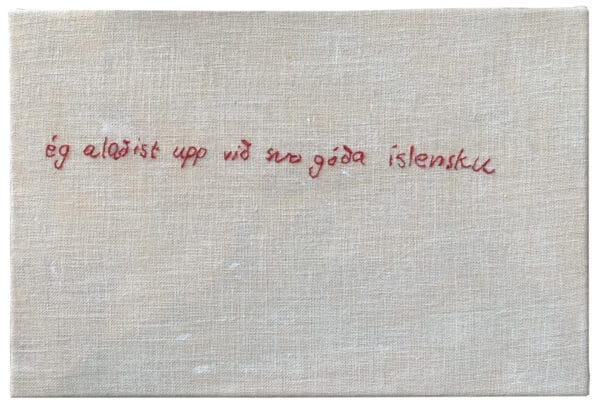 ég alaðist upp við svo góða íslensku